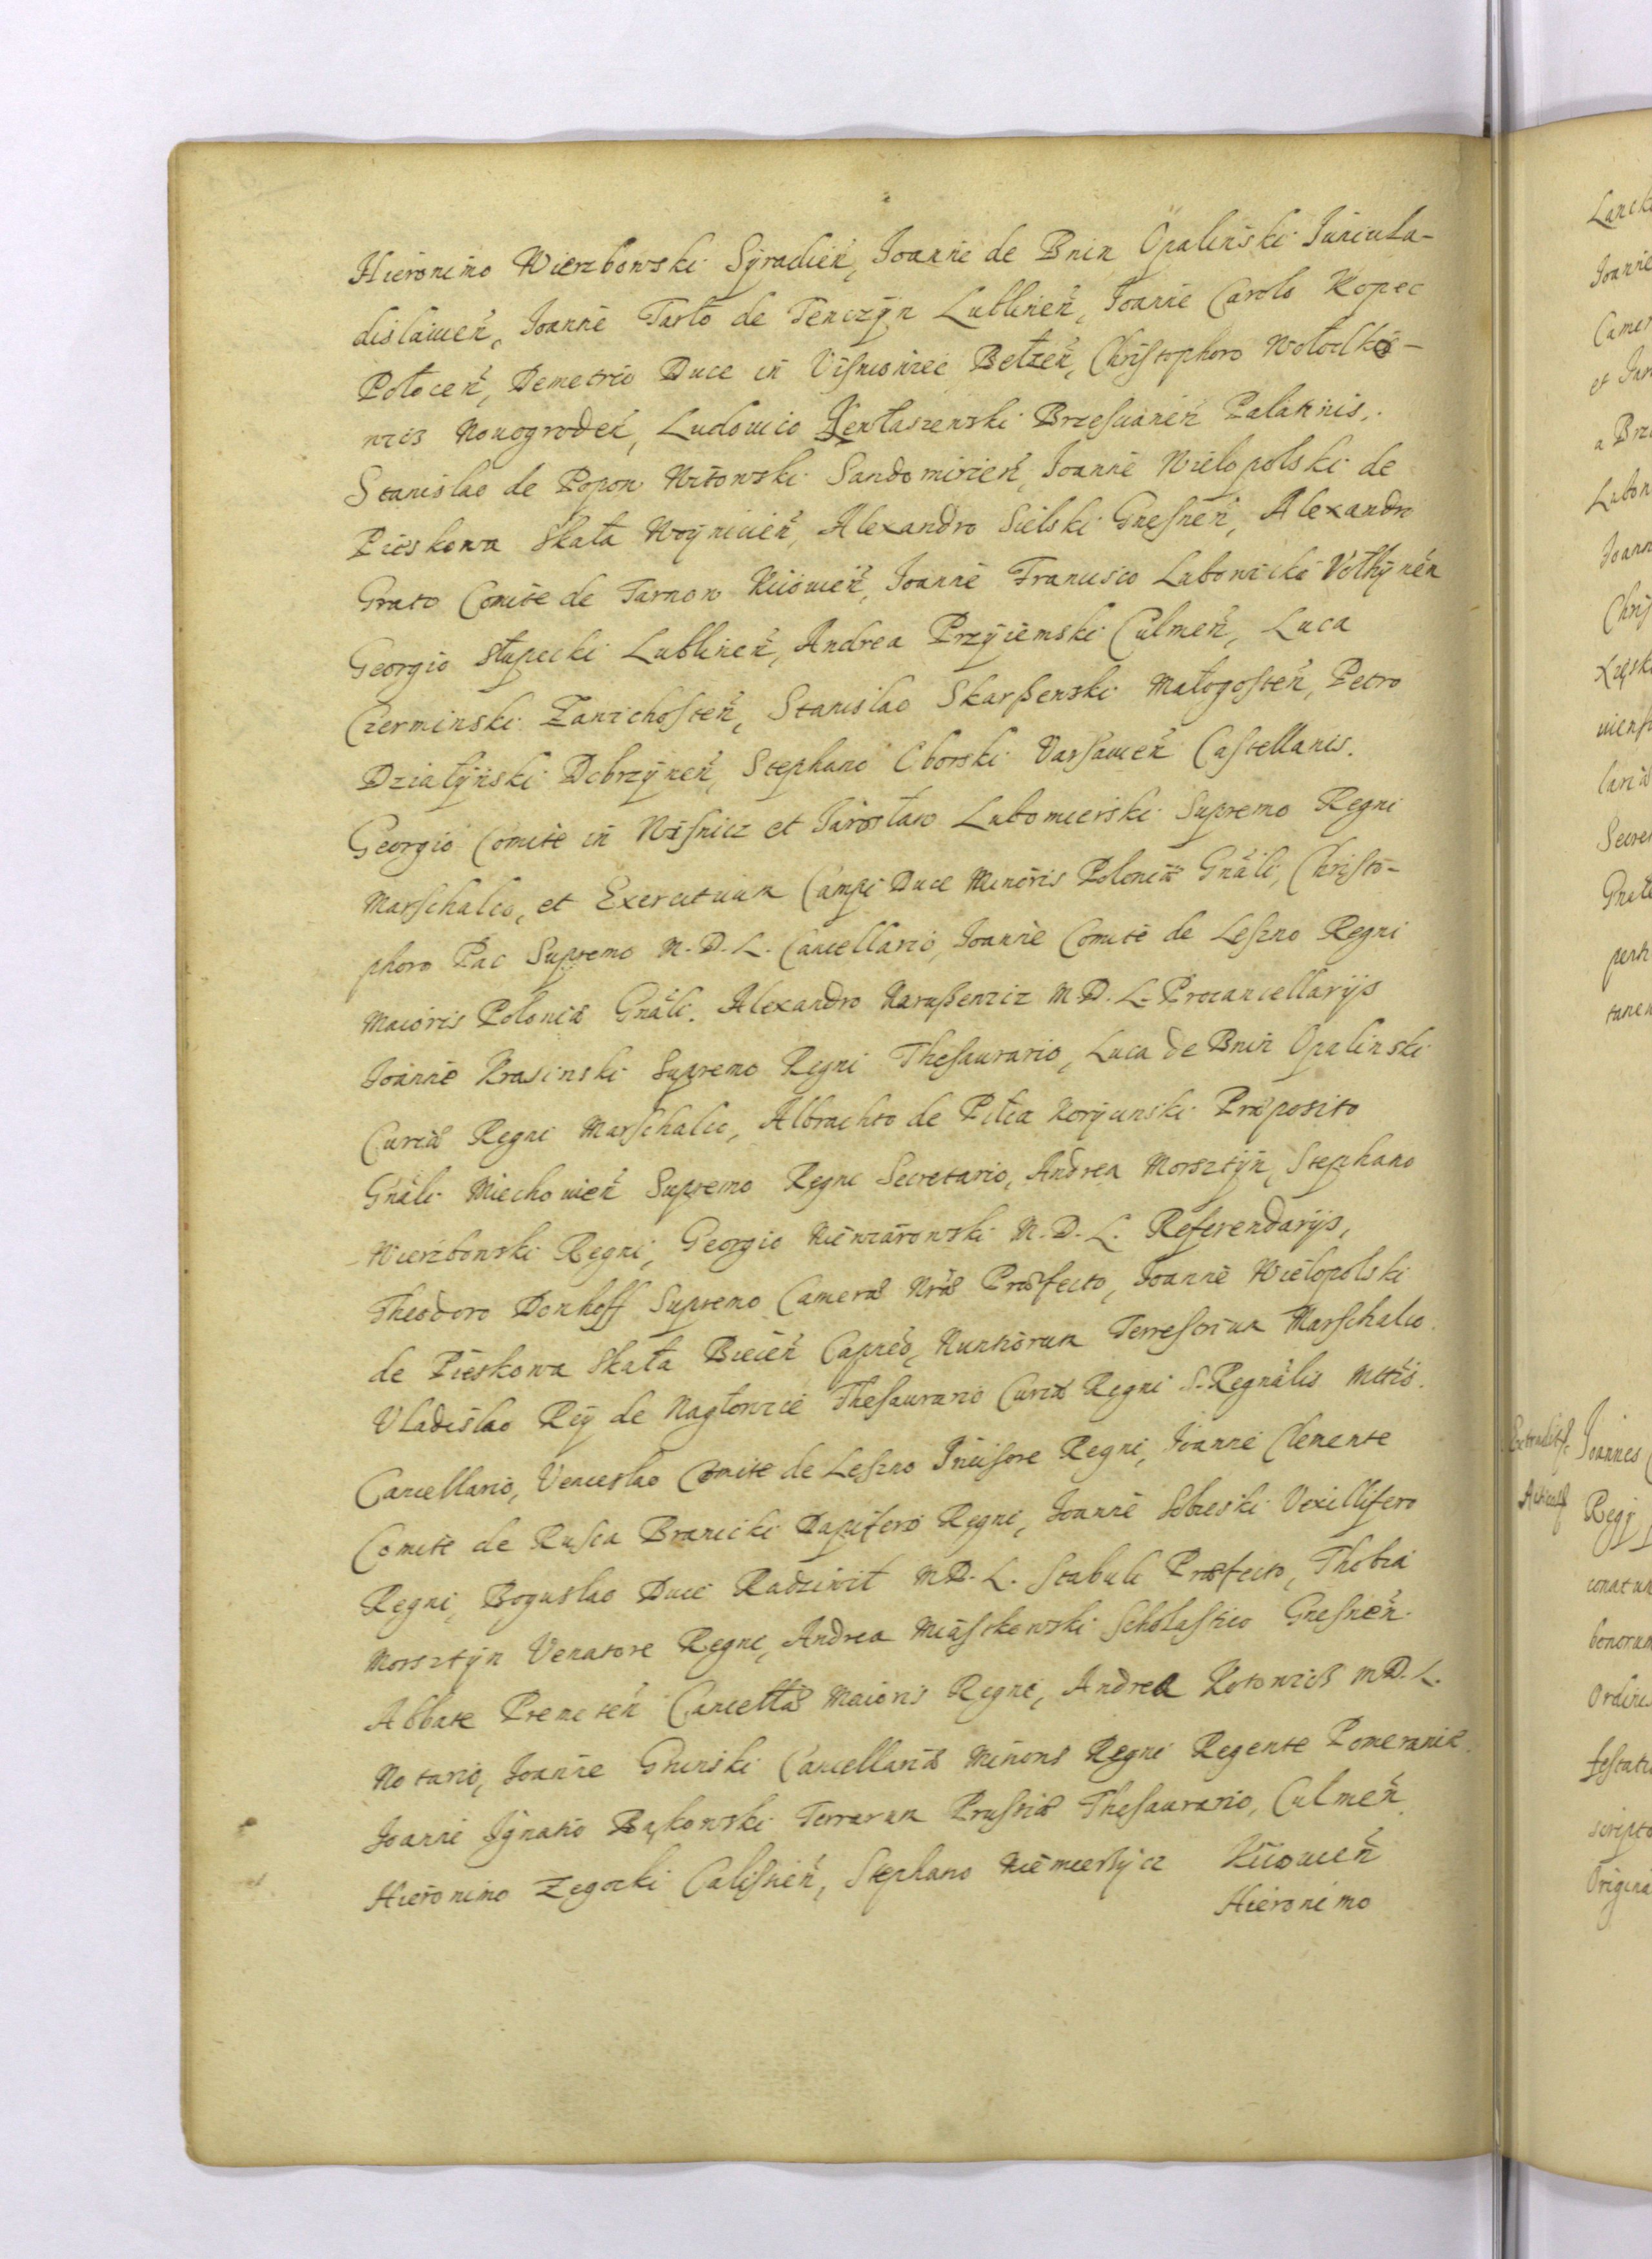 Hieronimo Wierzbowski Syradien̄, Joanne de Bnin Opalinski Juniula-
dislauien̄, Joanne Tarło de Tenczÿn Lublinen̄, Joanne Carolo Kopec
Połocen̄, Demetrio Duce in Visniowiec Bełzen̄, Christophoro Wołodko-
wicz Nouogroden̄, Ludouico Jewłaszewski Brzesuanien̄ Palatinis.
Stanislao de Popow Witowski Sandomirien̄, Joanne Wielopolski de
Pieskowa Skała Woÿnicien̄, Alexandro Sielski Gnesnen̄, Alexandro
Grato Comite de Tarnow Kiiouien̄, Joanne Francisco Lubowicki Vołhÿnen̄
Georgio Słupecki Lublinen̄, Andrea Przÿiemski Culmen̄, Luca
Czerminski Zawichosten̄, Stanislao Skarszewski Małogosten̄, Petro
Działÿński Dobrzÿnen̄, Stephano Oborski Varsauien̄ Castellanis.
Georgio Comite in Wisnicz et Jarosław Lubomierski Supremo Regni
Marschalco, et Exercituum Campi Duce Minoris Poloniæ Gnāli, Christo-
phoro Pac Supremo M. D. L. Cancellario, Joanne Comite de Leszno Regni
Maioris Poloniæ Gnāli. Alexandro Naruszewicz M. D. L. Procancellarÿs
Joanne Krasinski Supremo Regni Thesaurario, Luca de Bnin Opalinski
Curiæ Regni Marschalco, Albrachto de Pilca Koryciński Præposito
Gnāli Miechouien̄ Supremo Regni Secretario, Andrea Morsztÿn, Stephano
Wierzbowski Regni, Georgio M. D. L. Referendarÿs,
Theodoro Donhoff Supremo Cameræ Nr̄æ Præfecto, Joanne Wielopolski
de Pieskowa Skała Biecien̄ Capn̄eo, Nuntiorum Terrestrium Marschalco.
Vladislao Reÿ de Nagłowice Thesaurario Curiæ Regni S. Regnālis Mttis.
Cancellario, Venceslao Comite de Leszno Incisore Regni, Joanne Clemente
Comite de Rusca Branicki Dapifero Regni, Joanne Sobieski Vexillifero
Regni, Boguslao Duce Radziwił M. D. L. Stabuli Præfecto, Thobia
Morsztÿn Venatore Regni, Andrea Miaskowski Scholastico Gnesnen̄.
Abbate Premeten̄ Cancellæ Maioris Regni, Andrea Kotowicz M. D. L.
Notario, Joanne Gninski Cancellariæ Minoris Regni Regente Pomeraniæ.
Joanne Ignatio Bąkowski Terrarum Prussiæ Thesaurario, Culmen̄
Hieronimo Zegocki Calisien̄, Stephano Niemierzÿcz Kiiouien̄
Hieronimo